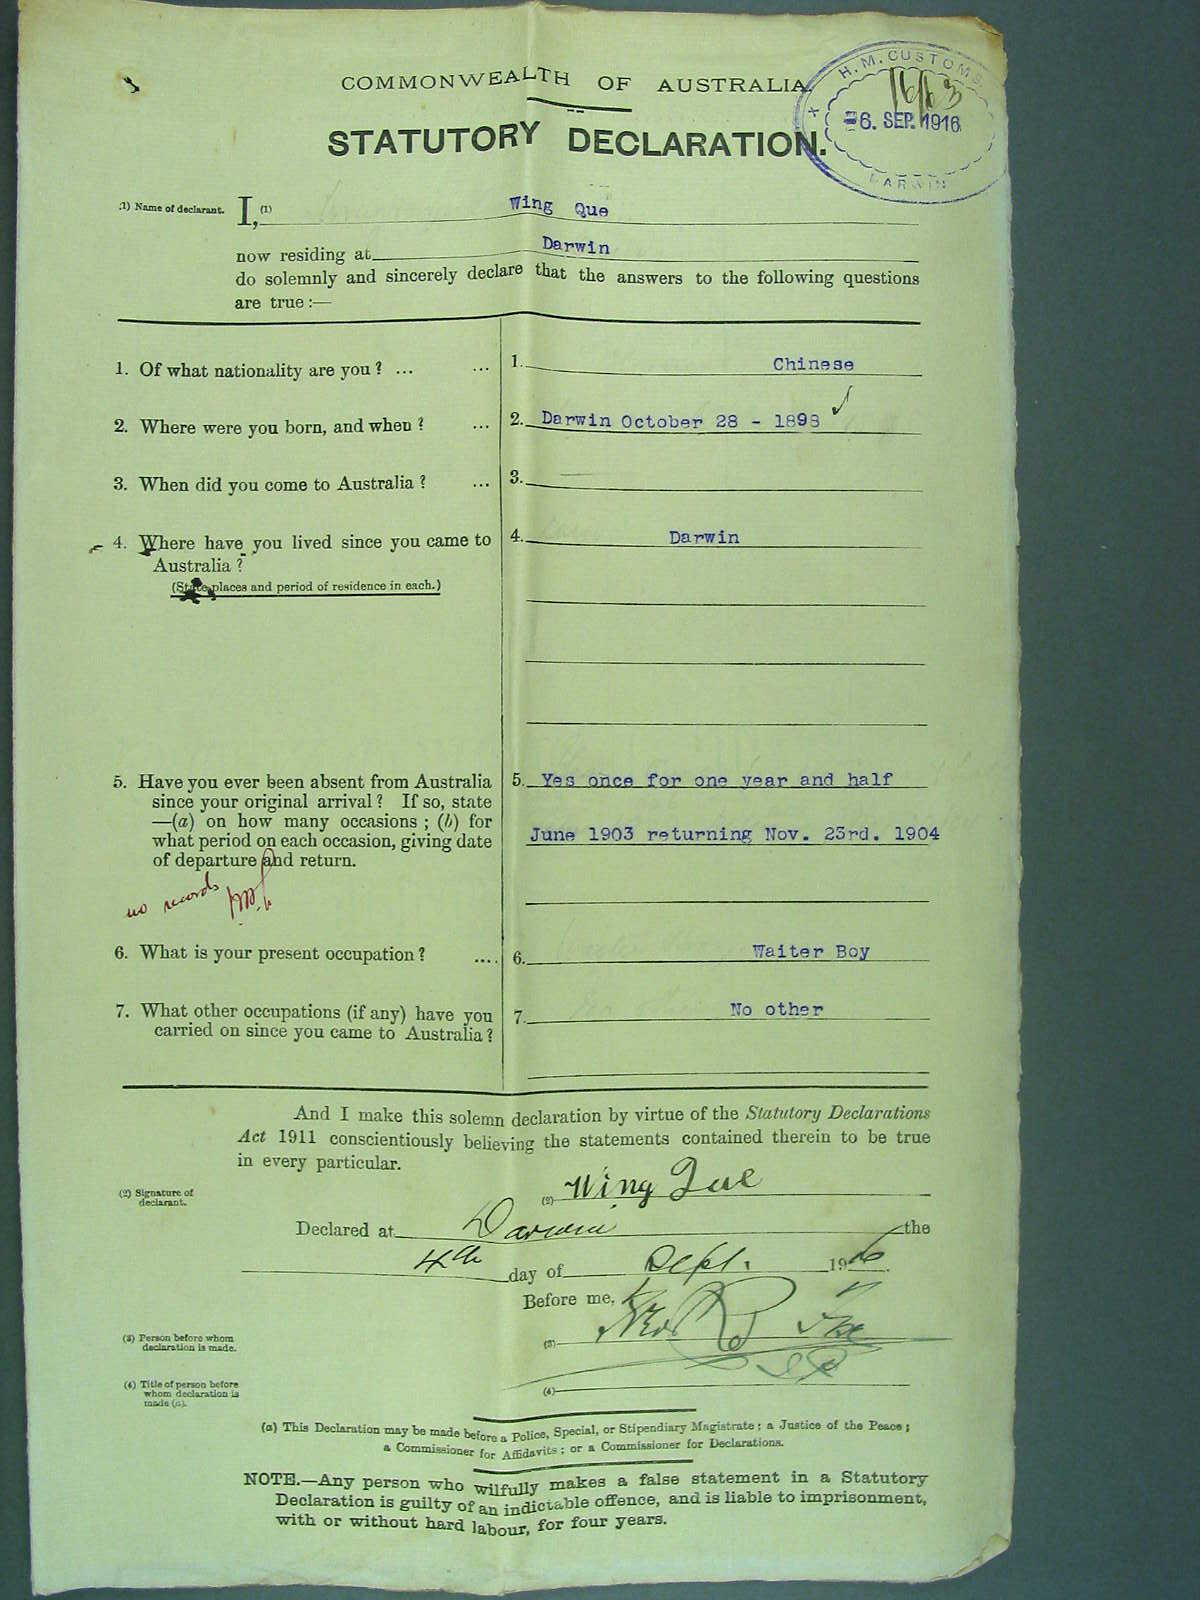 COMMONWEALTH OF AUSTRALIA.
H. M. CUSTOMS
16/63
6. SEP. 1916
DARWIN
STATUTORY DECLARATION.
(1) Name of declarant. I, (1) Wing Que
now residing at Darwin
do solemnly and sincerely declare that the answers to the following questions
are true :—
1. Of what nationality are you? ... ... 1. Chinese
2. Where were you born, and when? ... 2. Darwin October 28 - 1898
3. When did you come to Australia? ... 3. —
4. Where have you lived since you came to 4. Darwin
Australia?
(State places and period of residence in each.)
5. Have you ever been absent from Australia 5. Yes once for one year and half
since your original arrival? If so, state
—(a) on how many occasions; (b) for June 1903 returning Nov. 23rd. 1904
what period on each occasion, giving date
of departure and return.
no records
6. What is your present occupation? .... 6. Waiter Boy
7. What other occupations (if any) have you 7. No other
carried on since you came to Australia?
And I make this solemn declaration by virtue of the Statutory Declarations
Act 1911 conscientiously believing the statements contained therein to be true
in every particular.
(2) Signature of declarant. (2) Wing Que
Declared at Darwin the
4th day of Sept. 1916
Before me,
(3) Person before whom declaration is made. (3)
(4) Title of person before whom declaration is made (a). (4)
(a) This Declaration may be made before a Police, Special, or Stipendiary Magistrate; a Justice of the Peace;
a Commissioner for Affidavits; or a Commissioner for Declarations.
NOTE.—Any person who wilfully makes a false statement in a Statutory
Declaration is guilty of an indictable offence, and is liable to imprisonment,
with or without hard labour, for four years.